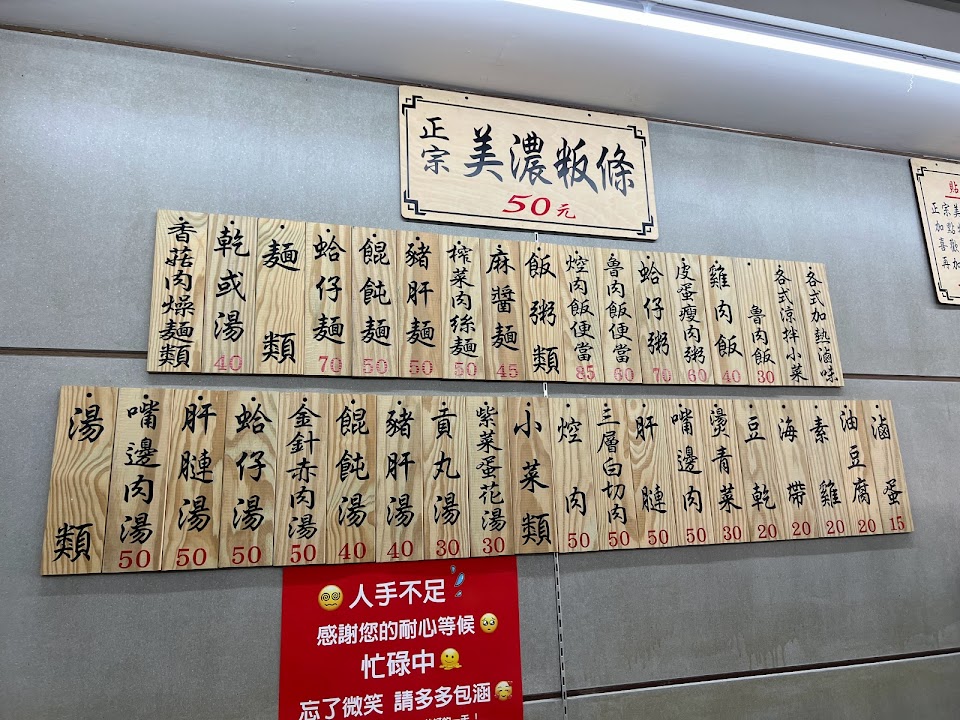 正宗 美濃粄條
50元
香菇肉燥麵類
乾或湯 40
麵類
蛤仔麵 70
餛飩麵 50
豬肝麵 50
榨菜肉絲麵 50
麻醬麵 45
飯粥類
焢肉飯便當 85
魯肉飯便當 60
蛤仔粥 70
皮蛋瘦肉粥 60
雞肉飯 40
魯肉飯 30
各式涼拌小菜
各式加熱滷味
湯類
嘴邊肉湯 50
肝腱湯 50
蛤仔湯 50
金針赤肉湯 50
餛飩湯 40
豬肝湯 40
貢丸湯 30
紫菜蛋花湯 30
小菜類
焢肉 50
三層白切肉 50
肝腱 50
嘴邊肉 50
燙青菜 30
豆乾 20
海帶 20
素雞 20
油豆腐 20
滷蛋 15
貼
正宗美
加點
喜歡
再加
人手不足
感謝您的耐心等候
忙碌中
忘了微笑 請多多包涵